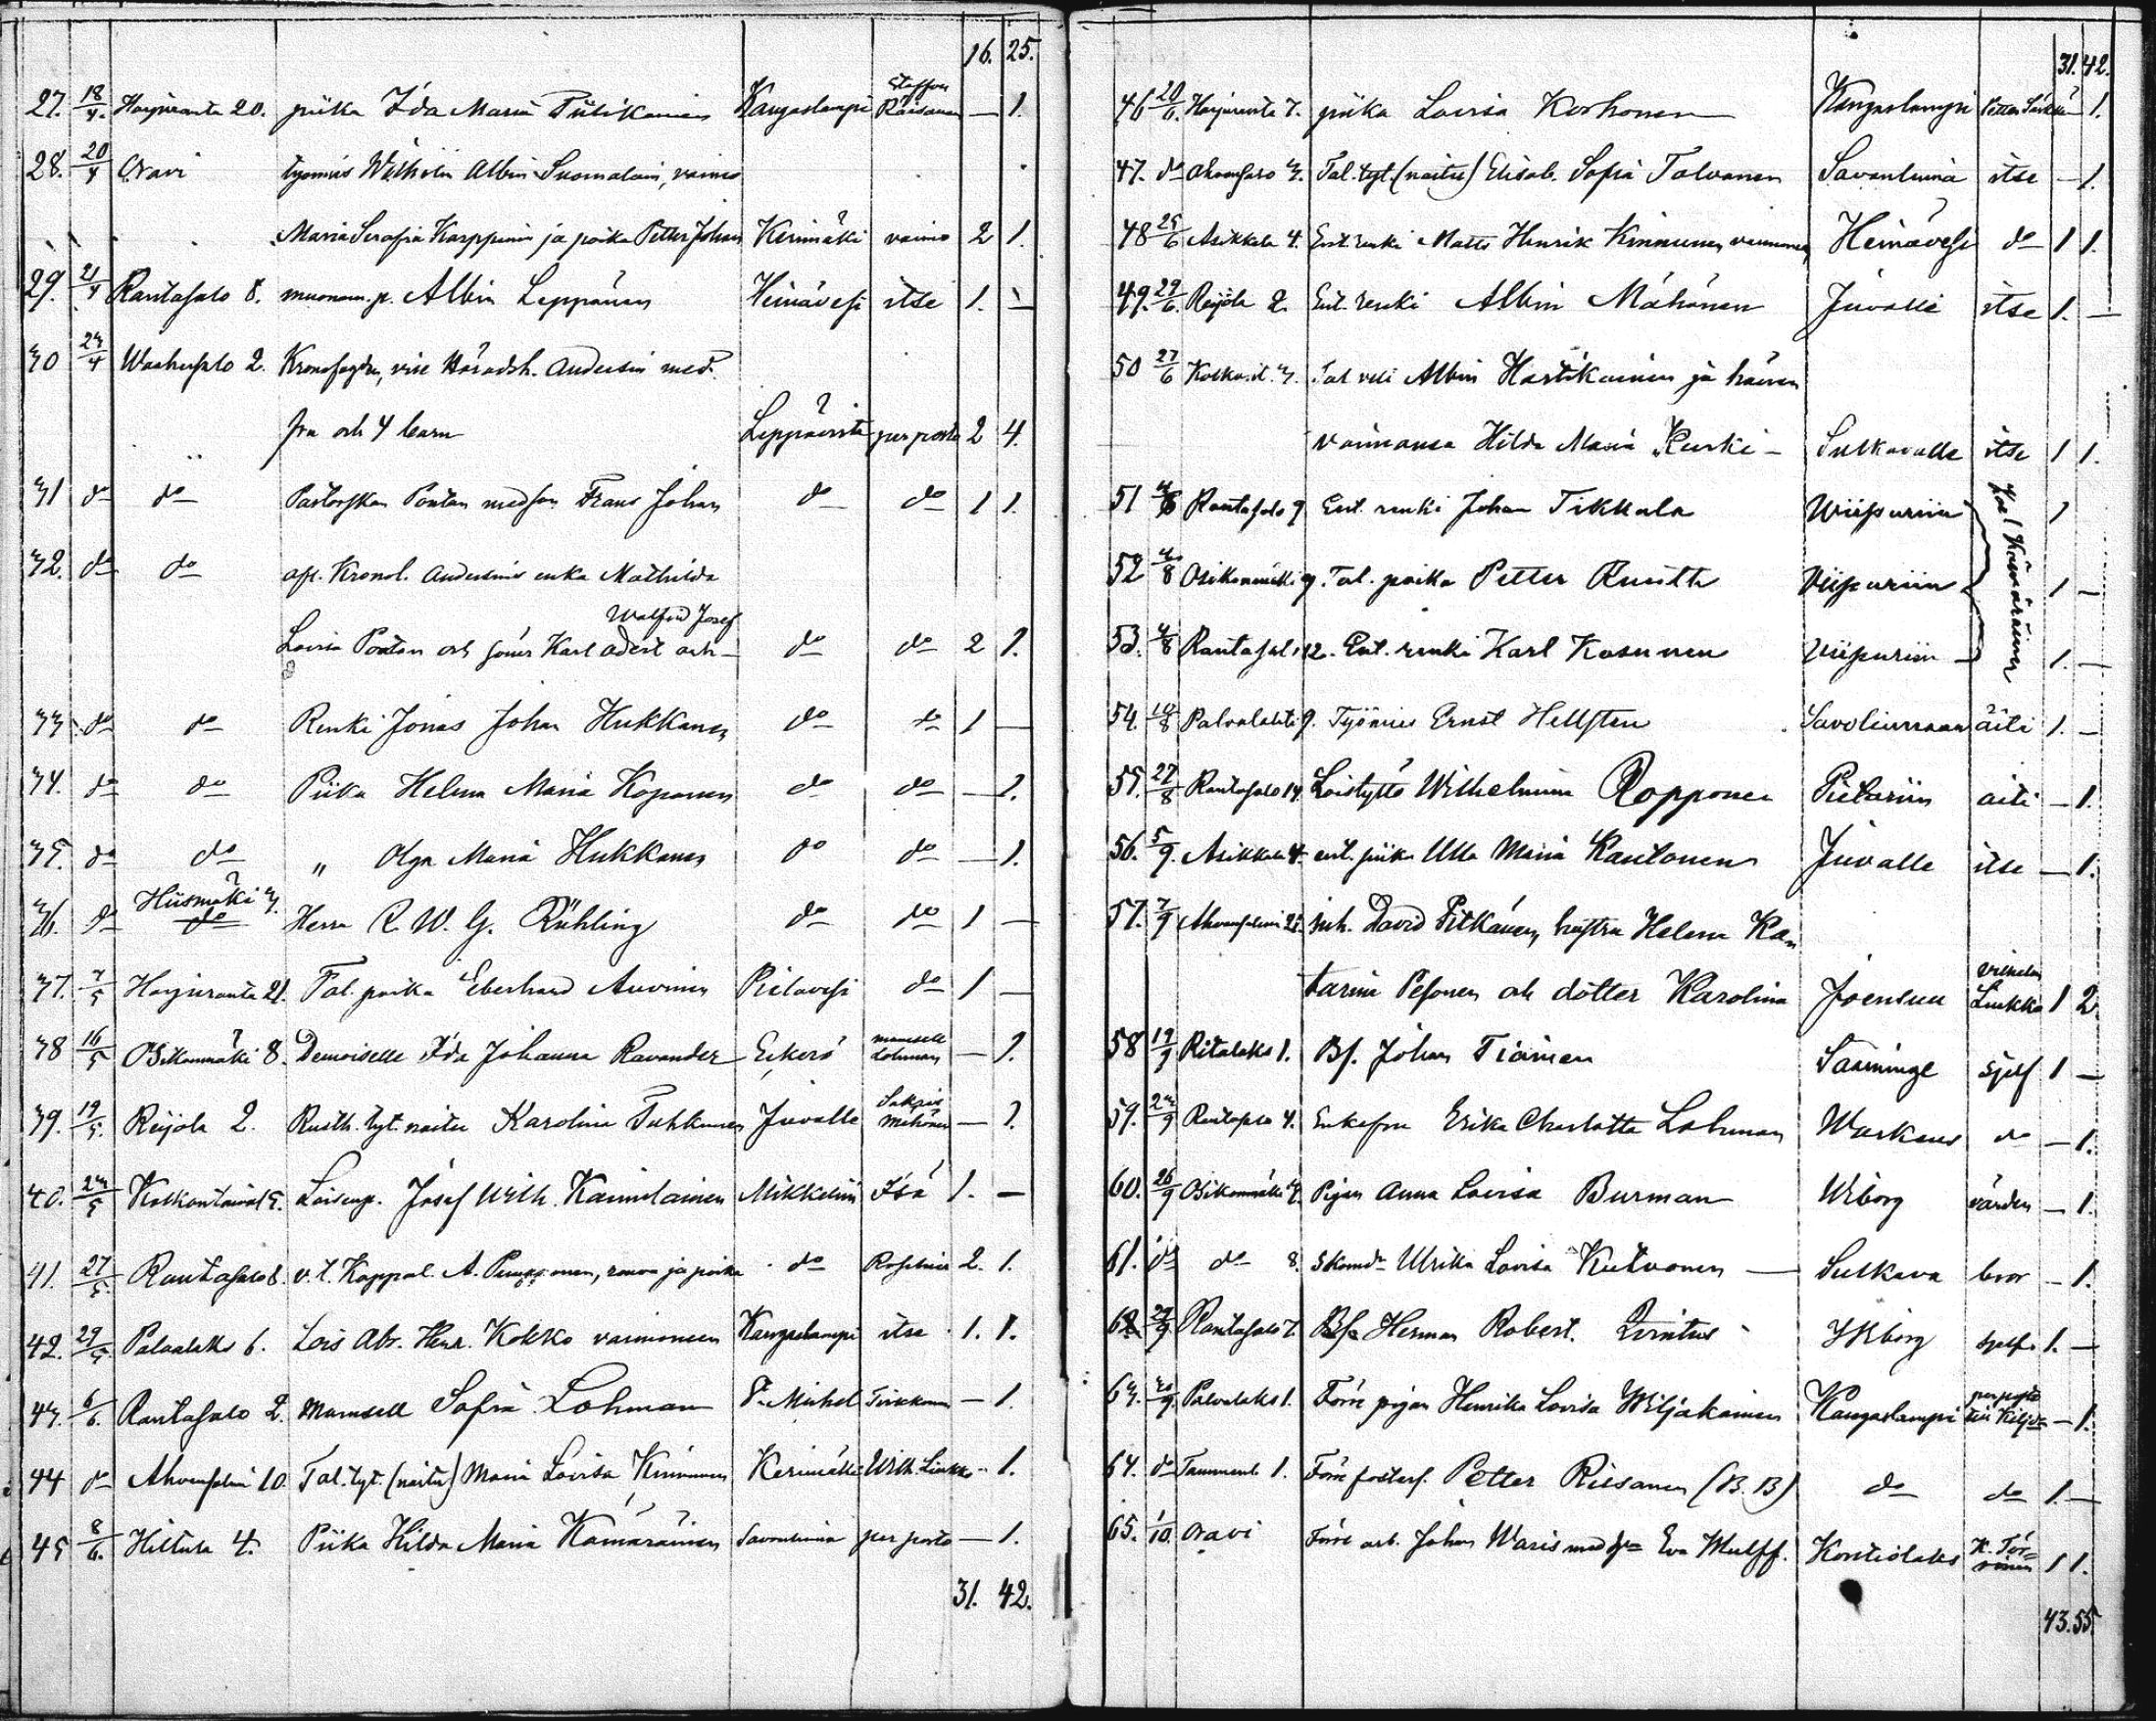 16. 25.
27. 18/4. Harjuranta 20. piika Ida Maria Piitikainen Kangaslampi Staffan Räisänen — 1.
28. 20/4 Oravi työmies Wilhelm Albin Suomalain, vaimo
Maria Serafia Karppinen ja poika Petter Johan Kerimäki vaimo 2 1.
29. 21/4 Rantasalo 8. muonam. p. Albin Leppänen Heinävesi itse 1. —
30 23/4 2. Kronofogden, vice Häradsh. Andersin med
fru och 4 barn Leppävirta per posto 2 4.
31 do do Pastorskan Pontan med son Frans Johan do do 1 1.
32. do do afl. Kronol. Andersins enka Mathilda
Walfrid Josef
Lovisa Pontan och söner Karl och — do do 2 1.
33. do do Renki Jonas Johan Hukkanen do do 1 —
34. do do Piika Helena Maria Koponen do do — 1.
35. do do " Olga Maria Hukkanen do do — 1.
36. do Hiismäki 3. do Herra R. W. G. Rühling do do 1 —
37. 7/5 Harjuranta 21. Tal. poika Eberhard Auvinen Pielavesi do 1 —
38 16/5 Osikonmäki 8. Demoiselle Ida Johanna Ravander Eckerö mamsell Lohman — 1.
39. 19/5. Reijola 2. Rusth. tyt. naitu Karolina Tuhkunen Juvalle Mähönen — 1.
40. 23/5 Loisenp. Josef Wilh. Kainulainen Mikkeliin Isä 1. —
41. 27/5. Rantasalo 8. v. t. Kappal. A. rouva ja poika do Roselius 2. 1.
42. 29/5. Palvalaks 6. Lois Abr. Henr. Kokko vaimoneen Kangaslampi itse 1. 1.
43. 6/6. Rantasalo 2. Mamsell Sofia Lohman St. Michel Tirkkonen — 1.
44 do Ahvensalmi 10. Tal. tyt. (naitu) Maria Lovisa Kinnunen Kerimäki Wilh. Liukko — 1.
45 8/6. Hiltula 4. Piika Hilda Maria Kämäräinen Savonlinna per posto — 1.
31. 42.
31. 42.
46 20/6. Harjuranta 7. piika Lovisa Korhonen Kangaslampi Petter Särkkä — 1.
47. do 3. Tal. tyt. (naitu) Elisab. Sofia Tolvanen Savonlinna itse — 1.
48 25/6 Asikkala 4. Ent. renki Matts Henrik Kinnunen vaimoneen Heinävesi do 1 1.
49. 29/6. Reijola 2. Ent. renki Albin Mähönen Juvalle itse 1. —
50 27/6 3. Tal. veli Albin Hartikainen ja hänen
vaimonsa Hilda Maria Kurki — Sulkavalle itse 1 1.
51 4/8 Rantasalo 9 Ent. renki Johan Tikkala Wiipuriin 1
52 4/8 Osikonmäki 9. Tal. poika Petter Ruuth Viipuriin 1 —
53. 4/8 Rantasalo 12. Ent. renki Karl Kosunen Viipuriin — 1. —
Kämäräinen
54. 14/8 Palvalahti 9. Työmies Ernst Hellsten Savolinnaan äiti 1. —
55. 27/8 Rantasalo 14. Loistyttö Wilhelmina Ropponen Pietariin äiti — 1.
56. 5/9. Asikkala 4. ent. piika Ulla Maria Rautonen Juvalle itse — 1.
57. 7/9 Ahvensalmi inh. David Pitkänen, hustru Helena Ka-
tarina Pesonen och dotter Karolina Joensuu Vilhelm Liukko 1 2.
58 19/9 Ritalaks 1. Bs. Johan Tiainen Sääminge sjelf 1 —
59. 23/9 Rantasalo 4. Enkefru Erika Charlotta Lohman Warkaus do — 1.
60. 26/9 Osikonmäki 4. Pigan Anna Lovisa Burman Wiborg värden — 1.
61. do do 8. Skomd:r Ulrika Lovisa Kietvonen — Sulkava bror — 1.
62 29/9 Rantasalo 7. Bs. Herman Robert. Wiborg sjelf 1. —
63. 30/9 Palvalaks 1. Förre pigan Henrika Lovisa Wiljakainen Kangaslampi per posto — 1.
64. do 1. Förre fosters. Petter Riisanen (B. B) do do 1. —
65. 1/10. Oravi Förre arb. Johan Waris med h:u Eva Wulff. Kontiolaks 1 1.
43. 55.